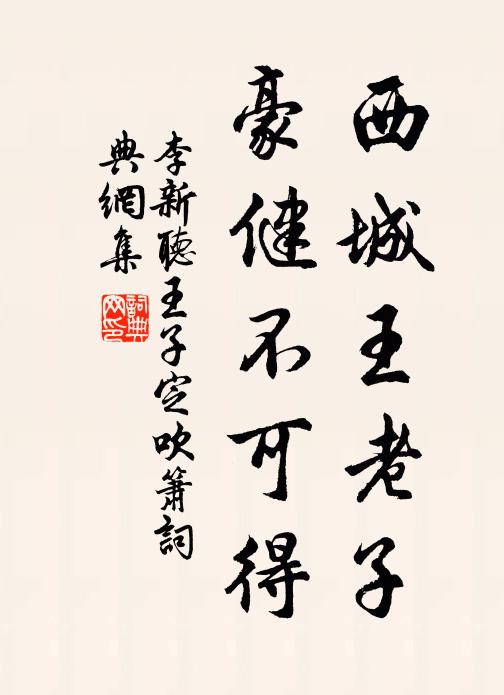 西城王老子
豪健不可得
李新聽王子定吹簫詞
典網集
詞典網印